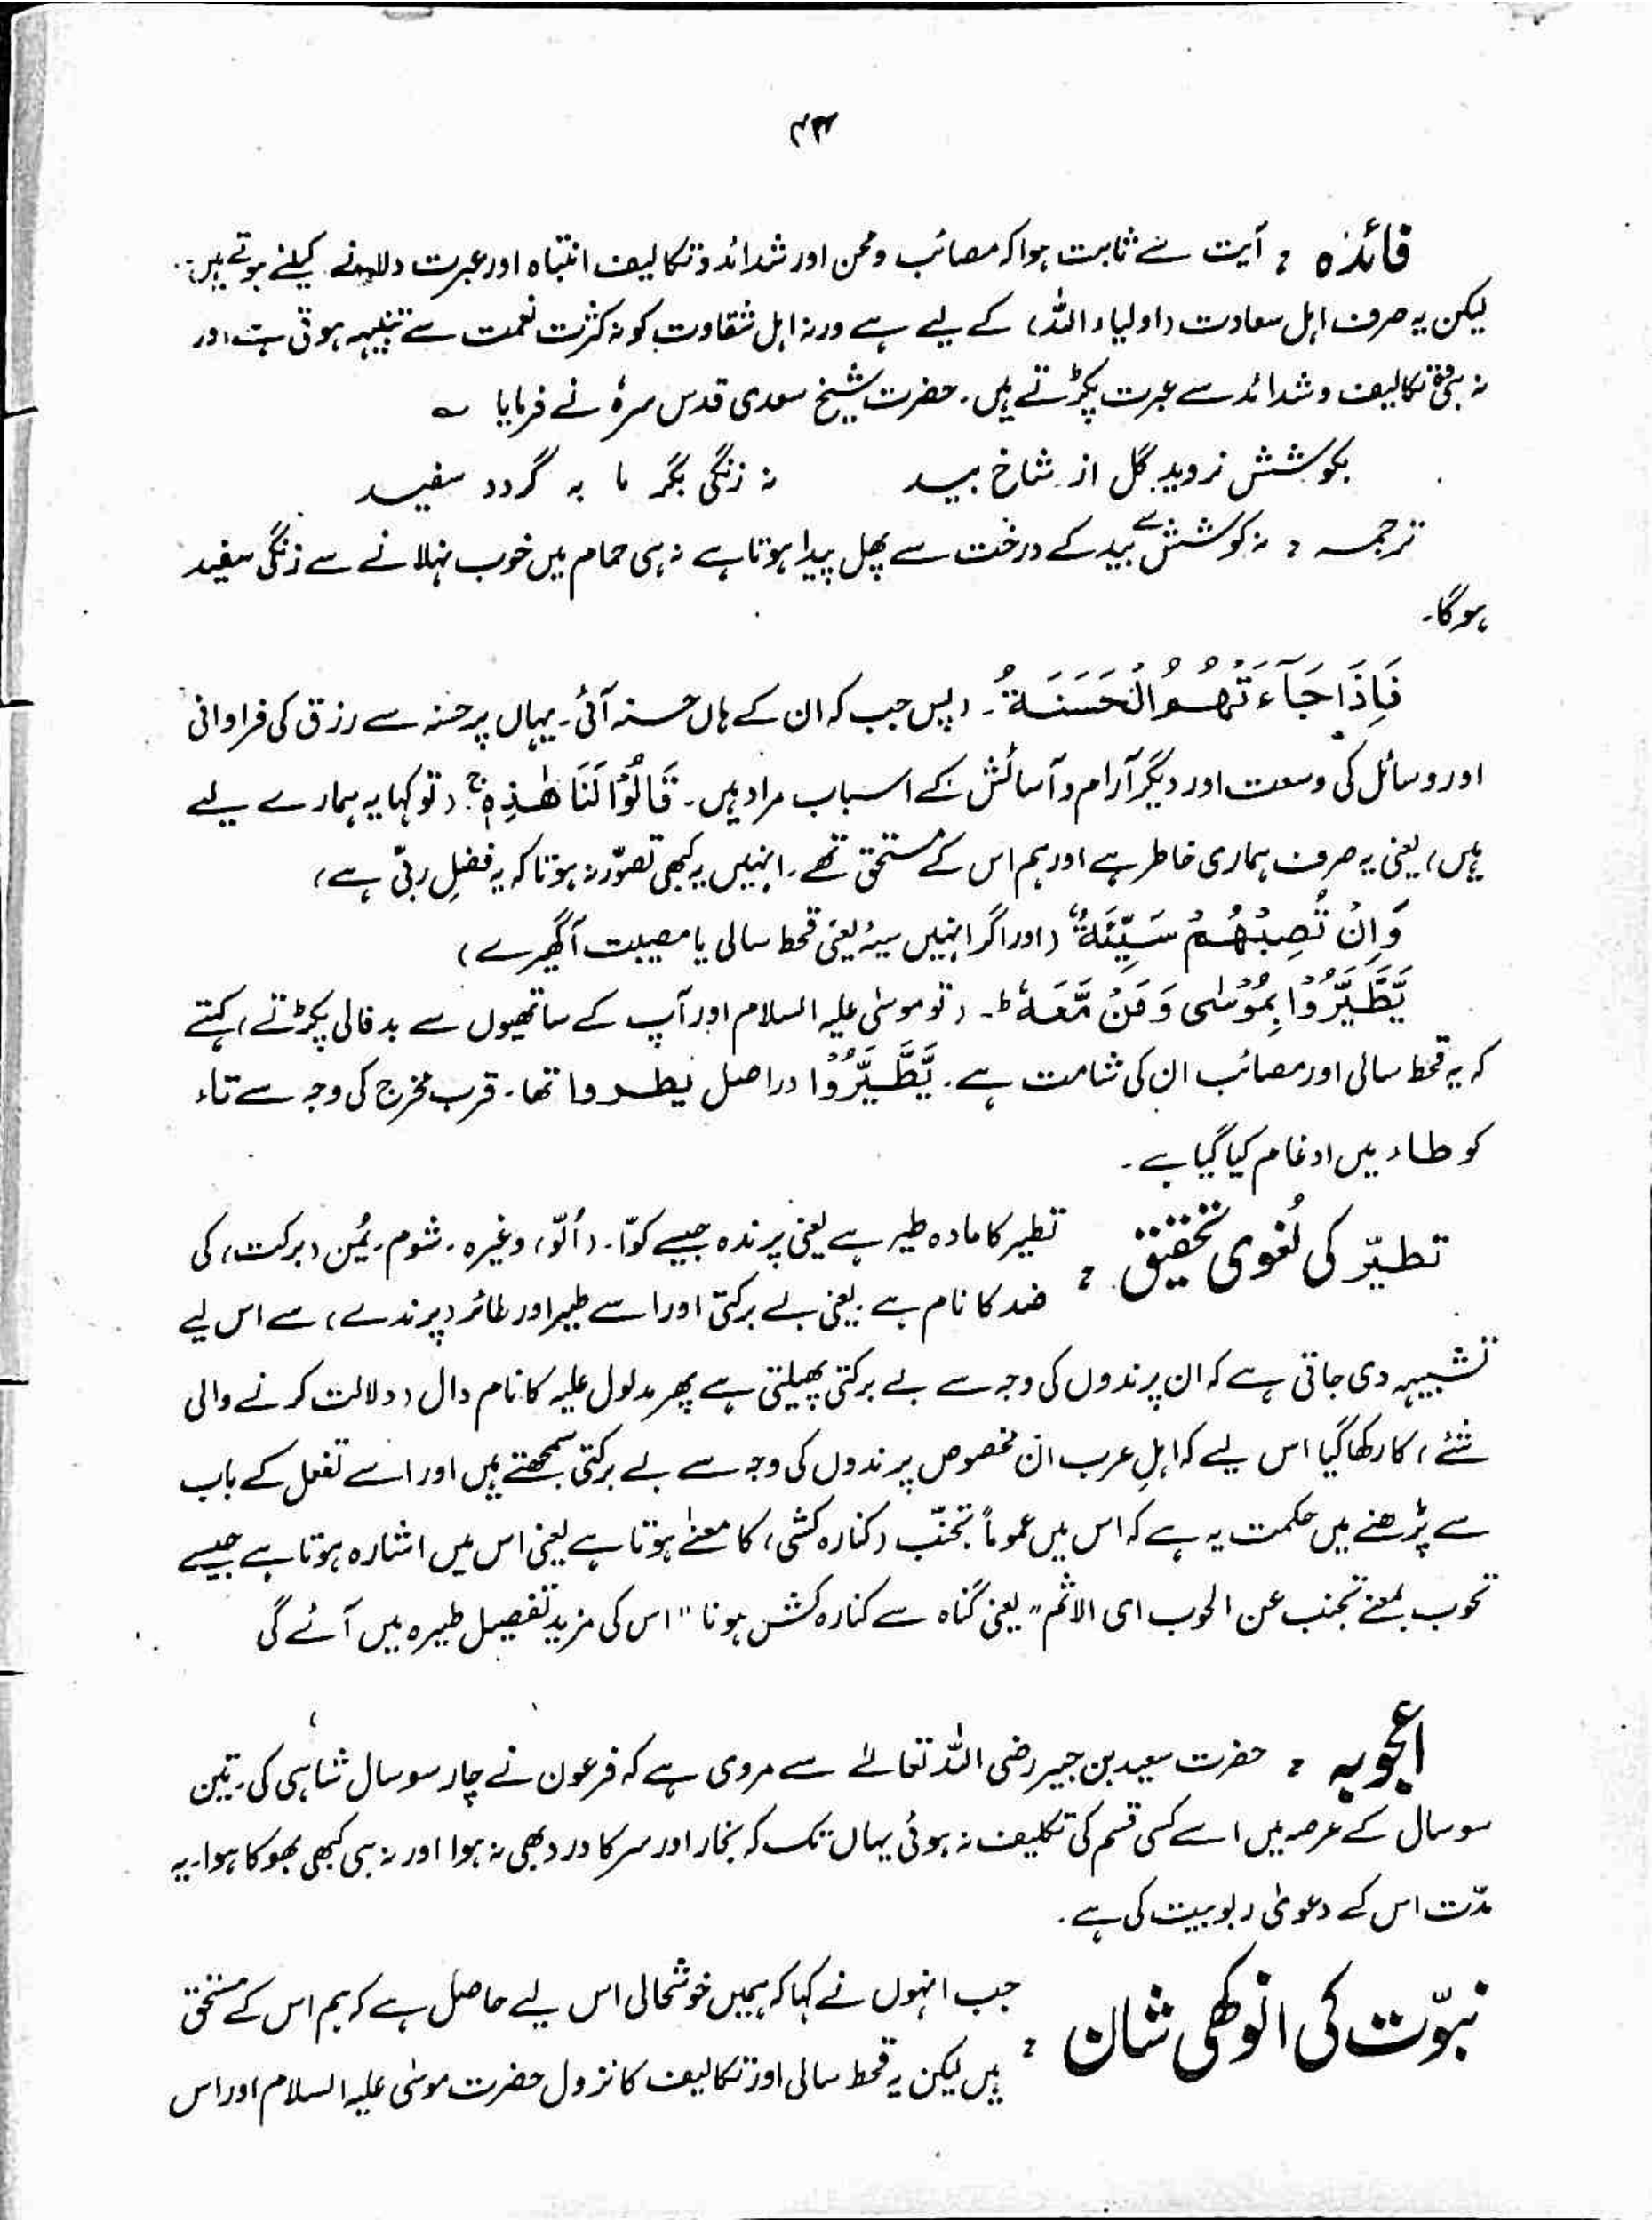 ۴۳
فائدہ : آیت سے ثابت ہوا کہ مصائب و محن اور شدائد و تکالیف انتباہ اور عبرت دلانے کیلئے ہوتے ہیں۔
لیکن یہ صرف اہل سعادت (اولیاء اللہ) کے لیے ہے ورنہ اہل شقاوت کو نہ کثرت نعمت سے تنبیہہ ہوتی ہے اور
نہ ہی وہ تکالیف و شدائد سے عبرت پکڑتے ہیں۔ حضرت شیخ سعدی قدس سرہٗ نے فرمایا ؎
بکوشش نروید گل از شاخ بید نہ زنگی بگر ما بہ گردد سفید
ترجمہ : نہ کوشش سے بید کے درخت سے پھل پیدا ہوتا ہے نہ ہی حمام میں خوب نہلانے سے زنگی سفید
ہوگا۔
فَاِذَا جَآءَتْهُمُ الْحَسَنَةُ۔ (پس جب کہ ان کے ہاں حسنہ آئی۔ یہاں پر حسنہ سے رزق کی فراوانی
اور وسائل کی وسعت اور دیگر آرام و آسائش کے اسباب مراد ہیں۔ قَالُوْا لَنَا هٰذِهٖ ج (تو کہا یہ ہمارے لیے
ہیں) یعنی یہ صرف ہماری خاطر ہے اور ہم اس کے مستحق تھے۔ انہیں یہ کبھی تصوّر نہ ہوتا کہ یہ فضلِ ربّی ہے)
وَاِنْ تُصِبْهُمْ سَيِّئَةٌ (اور اگر انہیں سیئہ یعنی قحط سالی یا مصیبت آگھیرے)
يَّطَّيَّرُوْا بِمُوْسٰى وَمَنْ مَّعَهٗ ط۔ (تو موسیٰ علیہ السلام اور آپ کے ساتھیوں سے بدفالی پکڑتے) کہتے
کہ یہ قحط سالی اور مصائب ان کی شامت ہے۔ يَّطَّيَّرُوْا دراصل یطیروا تھا۔ قرب مخرج کی وجہ سے تاء
کو طاء میں ادغام کیا گیا ہے۔
تطیّر کی لُغوی تحقیق : تطیر کا مادہ طیر ہے یعنی پرندہ جیسے کوّا۔ (اُلّو) وغیرہ۔ شوم۔ یُمن (برکت) کی
ضد کا نام ہے۔ یعنی بے برکتی اور اسے طیر اور طائر (پرندے) سے اس لیے
تشبیہہ دی جاتی ہے کہ ان پرندوں کی وجہ سے بے برکتی پھیلتی ہے پھر مدلول علیہ کا نام دال (دلالت کرنے والی
شئے) کا رکھا گیا اس لیے کہ اہلِ عرب ان مخصوص پرندوں کی وجہ سے بے برکتی سمجھتے ہیں اور اسے تفعل کے باب
سے پڑھنے میں حکمت یہ ہے کہ اس میں عموماً تجنّب (کنارہ کشی) کا معنےٰ ہوتا ہے یعنی اس میں اشارہ ہوتا ہے جیسے
تحوب بمعنے تجنب عن الحوب ای الاثم" یعنی گناہ سے کنارہ کش ہونا" اس کی مزید تفصیل طیرہ میں آئے گی
اعجوبہ : حضرت سعید بن جبیر رضی اللہ تعالےٰ سے مروی ہے کہ فرعون نے چار سو سال شاہی کی۔ تین
سو سال کے عرصہ میں اسے کسی قسم کی تکلیف نہ ہوئی یہاں تک کہ بخار اور سر کا درد بھی نہ ہوا اور نہ ہی کبھی بھوکا ہوا۔ یہ
مدّت اس کے دعویٰ ربوبیت کی ہے۔
نبوّت کی انوکھی شان : جب انہوں نے کہا کہ ہمیں خوشحالی اس لیے حاصل ہے کہ ہم اس کے مستحق
ہیں لیکن یہ قحط سالی اور تکالیف کا نزول حضرت موسیٰ علیہ السلام اور اس